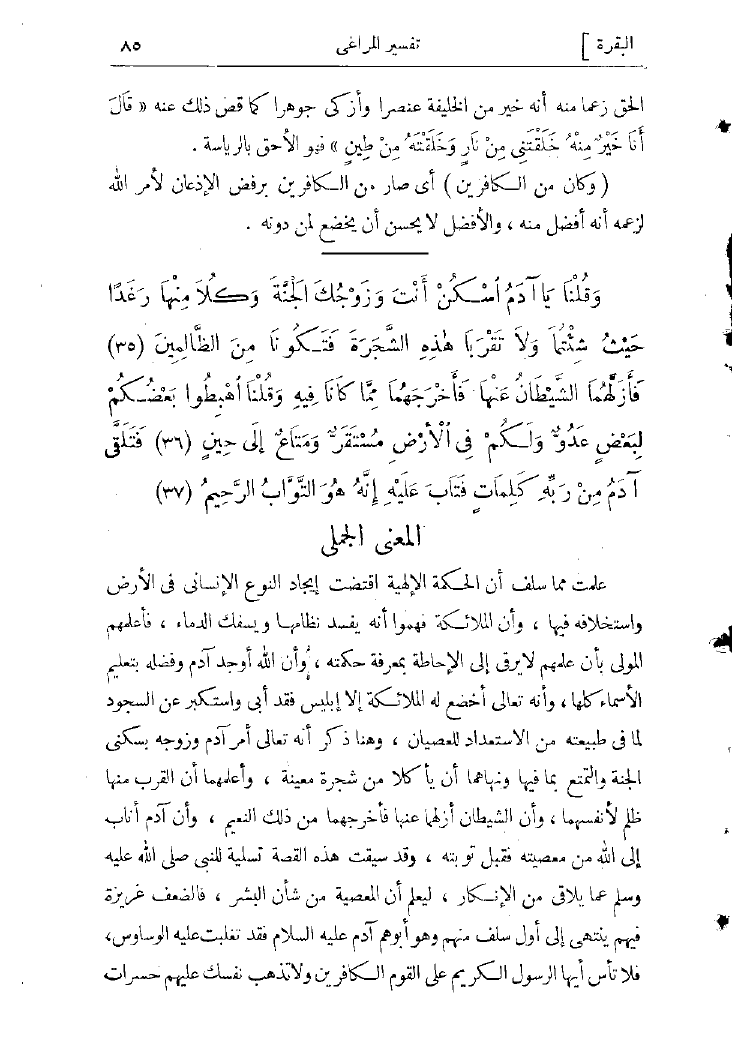 البقرة ] تفسير المراغى ٨٥
الحق زعما منه أنه خير من الخليفة عنصرا وأزكى جوهرا كما قص ذلك عنه « قَالَ
أَنَا خَيْرٌ مِنْهُ خَلَقْتَنِى مِنْ نَارٍ وَخَلَقْتَهُ مِنْ طِينٍ » فهو الأحق بالرياسة .
( وكان من الكافرين ) أى صار من الكافرين برفض الإذعان لأمر الله
لزعمه أنه أفضل منه ، والأفضل لا يحسن أن يخضع لمن دونه .
وَقُلْنَا يَا آدَمُ اُسْكُنْ أَنْتَ وَزَوْجُكَ الْجَنَّةَ وَكُلَا مِنْهَا رَغَدًا
حَيْثُ شِئْتُمَا وَلَا تَقْرَبَا هٰذِهِ الشَّجَرَةَ فَتَكُونَا مِنَ الظَّالِمِينَ (٣٥)
فَأَزَلَّهُمَا الشَّيْطَانُ عَنْهَا فَأَخْرَجَهُمَا مِمَّا كَانَا فِيهِ وَقُلْنَا اُهْبِطُوا بَعْضُكُمْ
لِبَعْضٍ عَدُوٌّ وَلَكُمْ فِى الْأَرْضِ مُسْتَقَرٌّ وَمَتَاعٌ إِلَى حِينٍ (٣٦) فَتَلَقَّى
آدَمُ مِنْ رَبِّهِ كَلِمَاتٍ فَتَابَ عَلَيْهِ إِنَّهُ هُوَ التَّوَّابُ الرَّحِيمُ (٣٧)
المعنى الجملى
علمت مما سلف أن الحكمة الإلهية اقتضت إيجاد النوع الإنسانى فى الأرض
واستخلافه فيها ، وأن الملائكة فهموا أنه يفسد نظامها ويسفك الدماء ، فأعلمهم
المولى بأن علمهم لا يرقى إلى الإحاطة بمعرفة حكمته ، وأن الله أوجد آدم وفضله بتعليم
الأسماء كلها ، وأنه تعالى أخضع له الملائكة إلا إبليس فقد أبى واستكبر عن السجود
لما فى طبيعته من الاستعداد للعصيان ، وهنا ذكر أنه تعالى أمر آدم وزوجه بسكنى
الجنة والتمتع بما فيها ونهاهما أن يأكلا من شجرة معينة ، وأعلمهما أن القرب منها
ظلم لأنفسهما ، وأن الشيطان أزلهما عنها فأخرجهما من ذلك النعيم ، وأن آدم أناب
إلى الله من معصيته فقبل توبته ، وقد سيقت هذه القصة تسلية للنبى صلى الله عليه
وسلم عما يلاقى من الإنكار ، ليعلم أن المعصية من شأن البشر ، فالضعف غريزة
فيهم ينتهى إلى أول سلف منهم وهو أبوهم آدم عليه السلام فقد تغلبت عليه الوساوس،
فلا تأس أيها الرسول الكريم على القوم الكافرين ولا تذهب نفسك عليهم حسرات